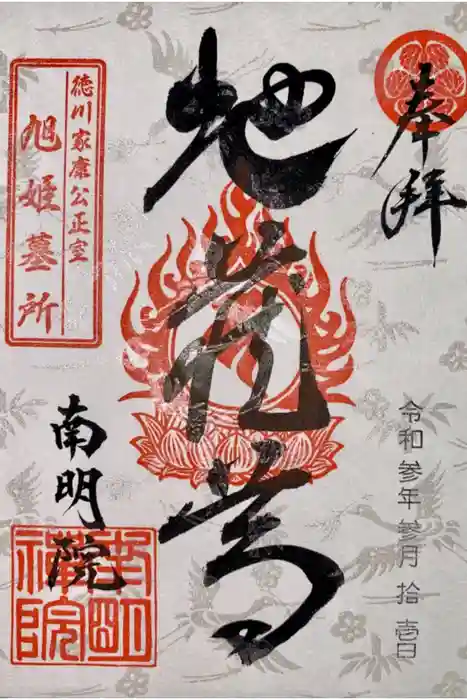 奉拝
令和参年参月拾壱日
地蔵尊
徳川家康公正室
旭姫墓所
南明院
南明
禅院